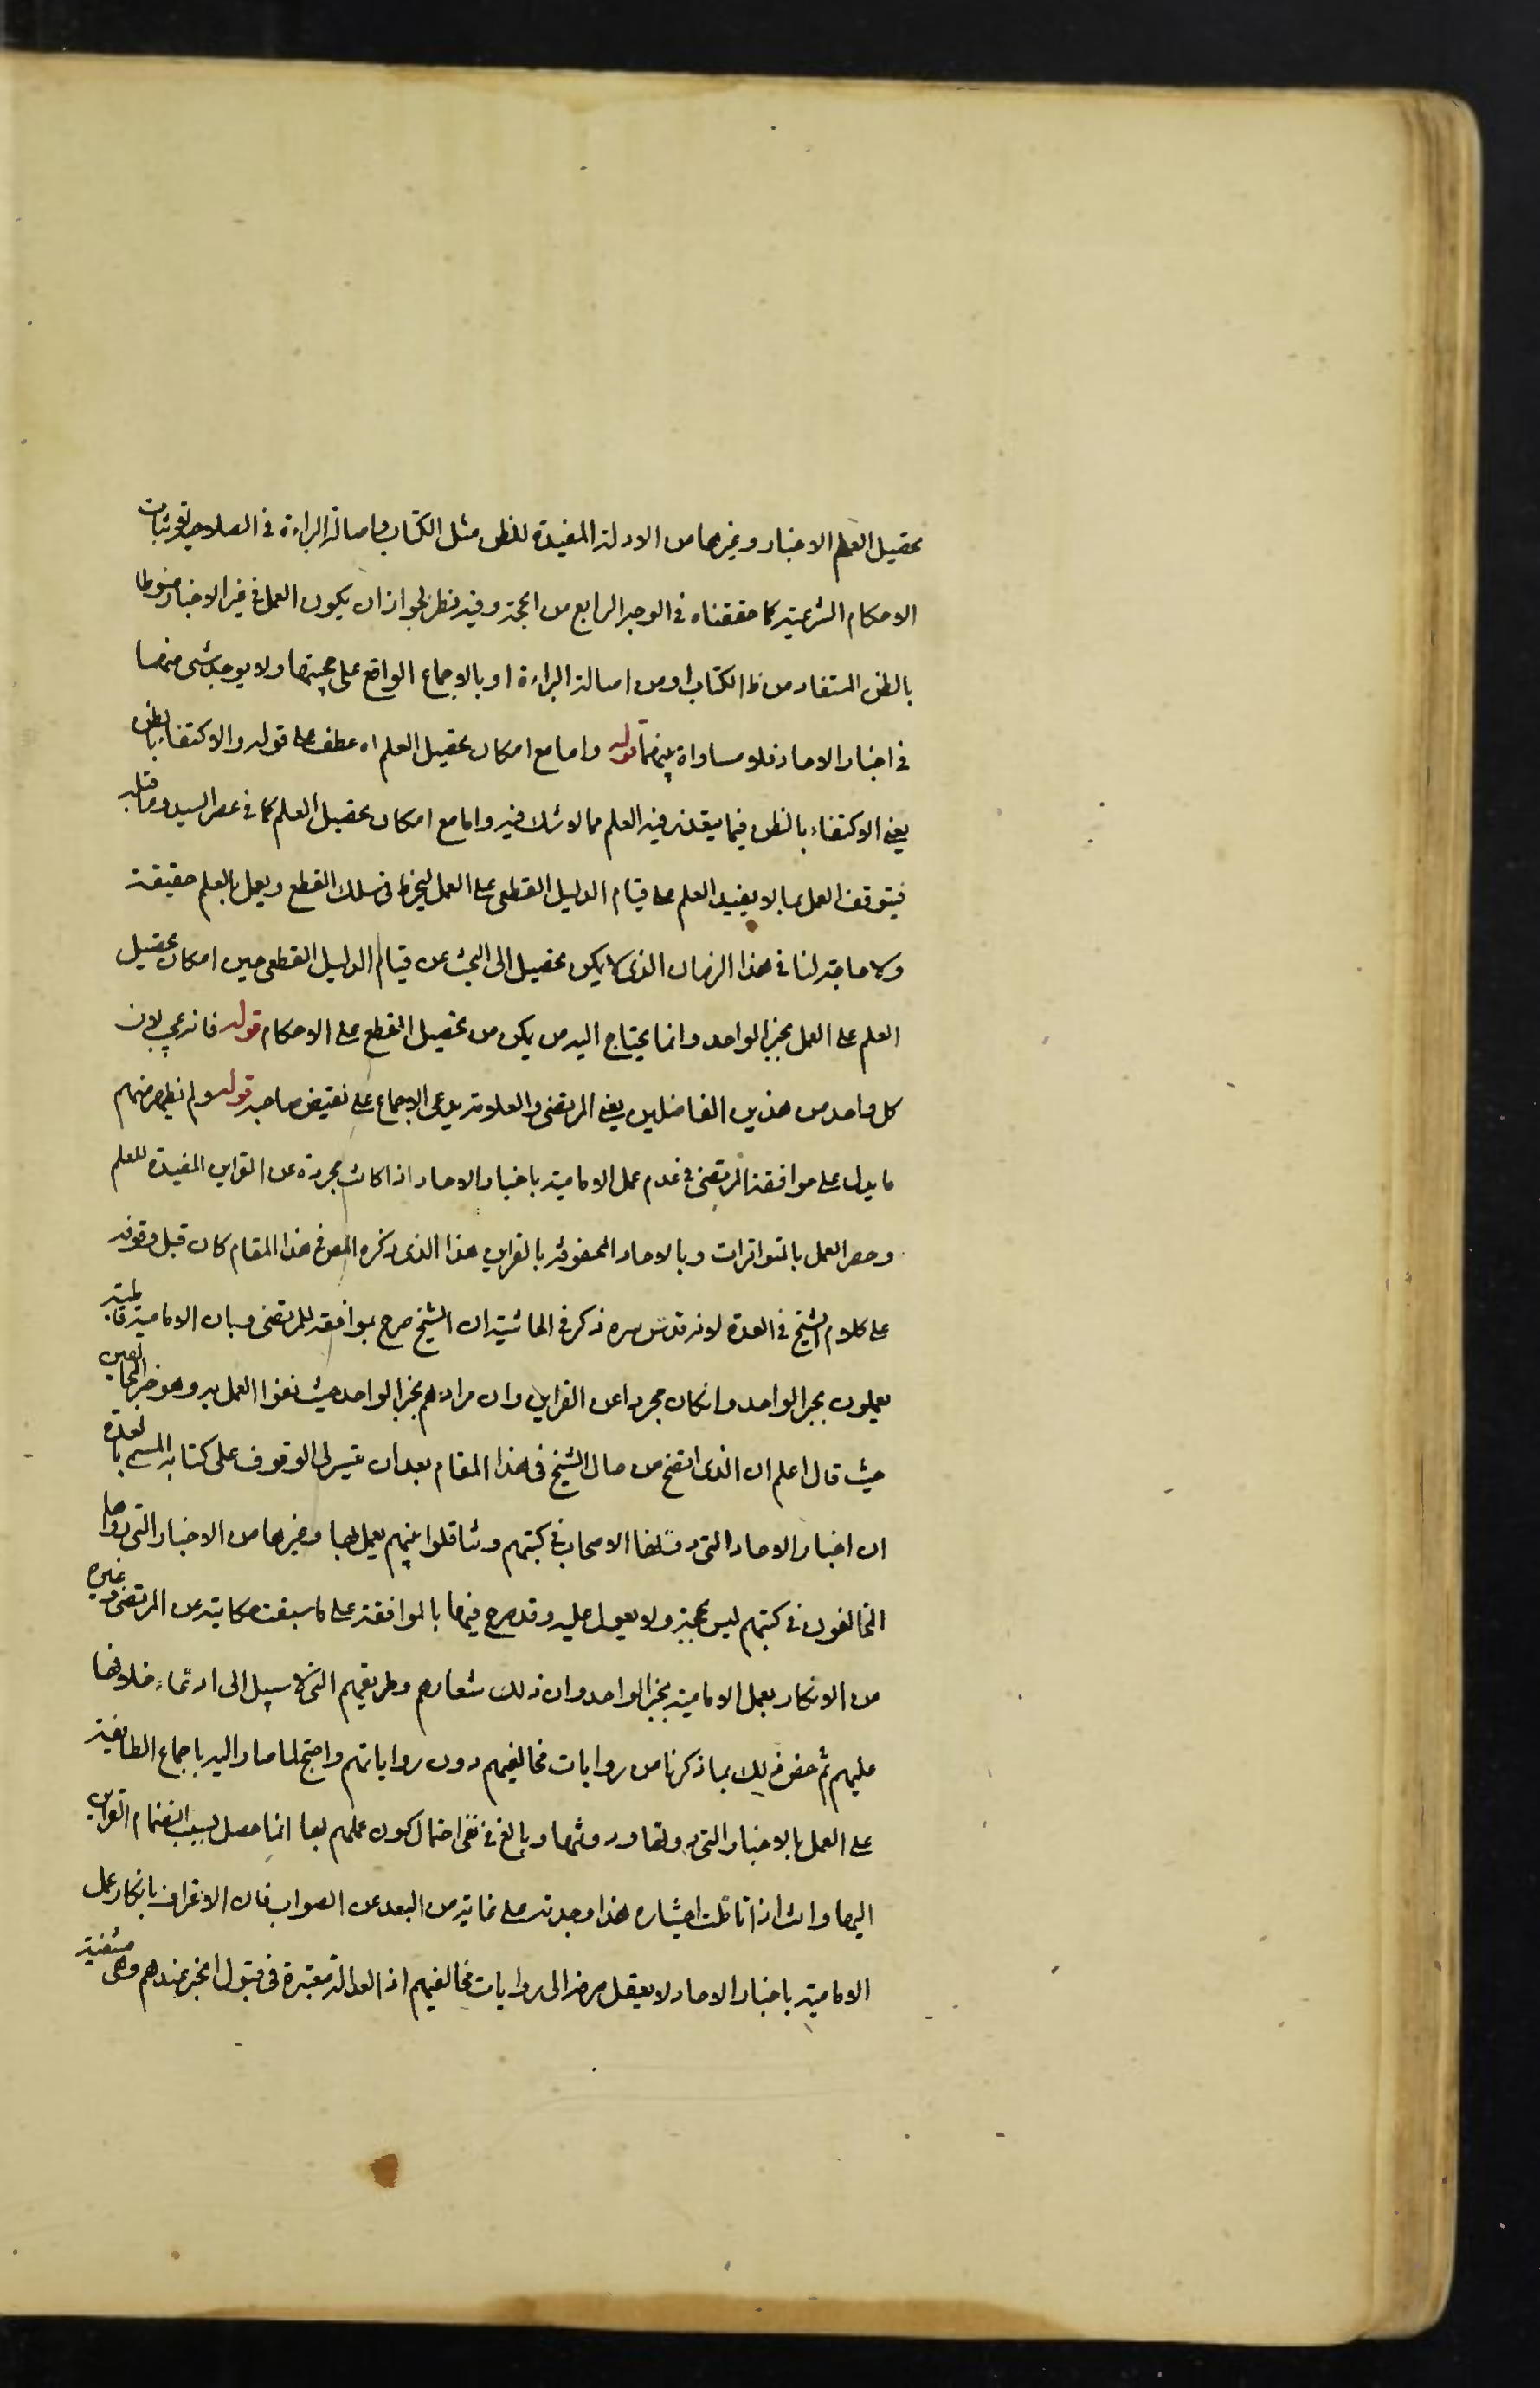 تحصيل العلم الاخبار وغيرها من الادلة المفيدة للظن مثل الكتاب واصالة البراءة في الصلاحية لاثبات
الاحكام الشرعية كما حققناه في الوجه الرابع من الحجة وفيه نظر لجواز ان يكون العمل في غير الاخبار منوطا
بالظن المستفاد من ظ الكتاب او من اصالة البراءة او بالاجماع الواقع على حجيتها ولا يوجد شئ منهما
في اخبار الاحاد فلا مساواة بينهما قوله واما مع امكان تحصيل العلم اه عطف على قوله والاكتفاء بالظن
يعني الاكتفاء بالظن فيما يتعذر فيه العلم مما لا شك فيه واما مع امكان تحصيل العلم كما في عصر السيد وما قبله
فيتوقف العمل بما لا يفيد العلم على قيام الدليل القطعي على العمل لينخرط في سلك القطع ويعمل بالعلم حقيقة
ولا حاجة لنا في هذا الزمان الذي لا يمكن تحصيل الى البحث عن قيام الدليل القطعي حين امكان تحصيل
العلم على العمل بخبر الواحد وانما يحتاج اليه من يمكن من تحصيل القطع على الاحكام قوله فانه عجيب لان
كل واحد من هذين الفاضلين يعني المرتضى والعلامة يدعى الاجماع على نقيض صاحبه قوله ولم يظهر منهم
ما يدل على موافقة المرتضى في عدم عمل الامامية باخبار الاحاد اذا كانت مجردة عن القراين المفيدة للعلم
وحصر العمل بالمتواترات وبالاحاد المحفوفة بالقراين هذا الذي ذكره المص في هذا المقام كان قبل وقوفه
على كلام الشيخ في العدة لانه قدس سره ذكر في الحاشية ان الشيخ صرح بموافقة للمرتضى وبان الامامية قاطبة
يعملون بخبر الواحد وان كان مجردا عن القراين وان مرادهم بخبر الواحد حيث نفوا العمل به وهو خبر المخالفين
حيث قال اعلم ان الذي اتضح من حال الشيخ في هذا المقام بعد ان تيسر لي الوقوف على كتابه المسمى بالعدة
ان اخبار الاحاد التي دونها الاصحاب في كتبهم وتناقلوا بينهم يعمل بها وغيرها من الاخبار التي رواها
المخالفون في كتبهم ليس بحجة ولا يعول عليه وقد صرح فيها بالموافقة على ما سبقت حكايته عن المرتضى وغيره
من الانكار بعمل الامامية بخبر الواحد وان ذلك شعارهم وطريقهم التي لا سبيل الى ادعاء خلافها
عليهم ثم خص ذلك بما ذكرنا من روايات مخالفيهم دون رواياتهم واحتج لما صار اليه باجماع الطايفة
على العمل بالاخبار التي رووها ودونوها وبالغ في نفي احتمال كون عملهم بها انما حصل بسبب انضمام القراين
اليها وانت اذا تاملت اختياره هذا وجدته على غاية من البعد عن الصواب فان الاعتراف بانكار عمل
الامامية باخبار الاحاد لا يعقل صرفه الى روايات مخالفيهم اذ العدالة معتبرة في قبول الخبر عندهم وهي منتفية